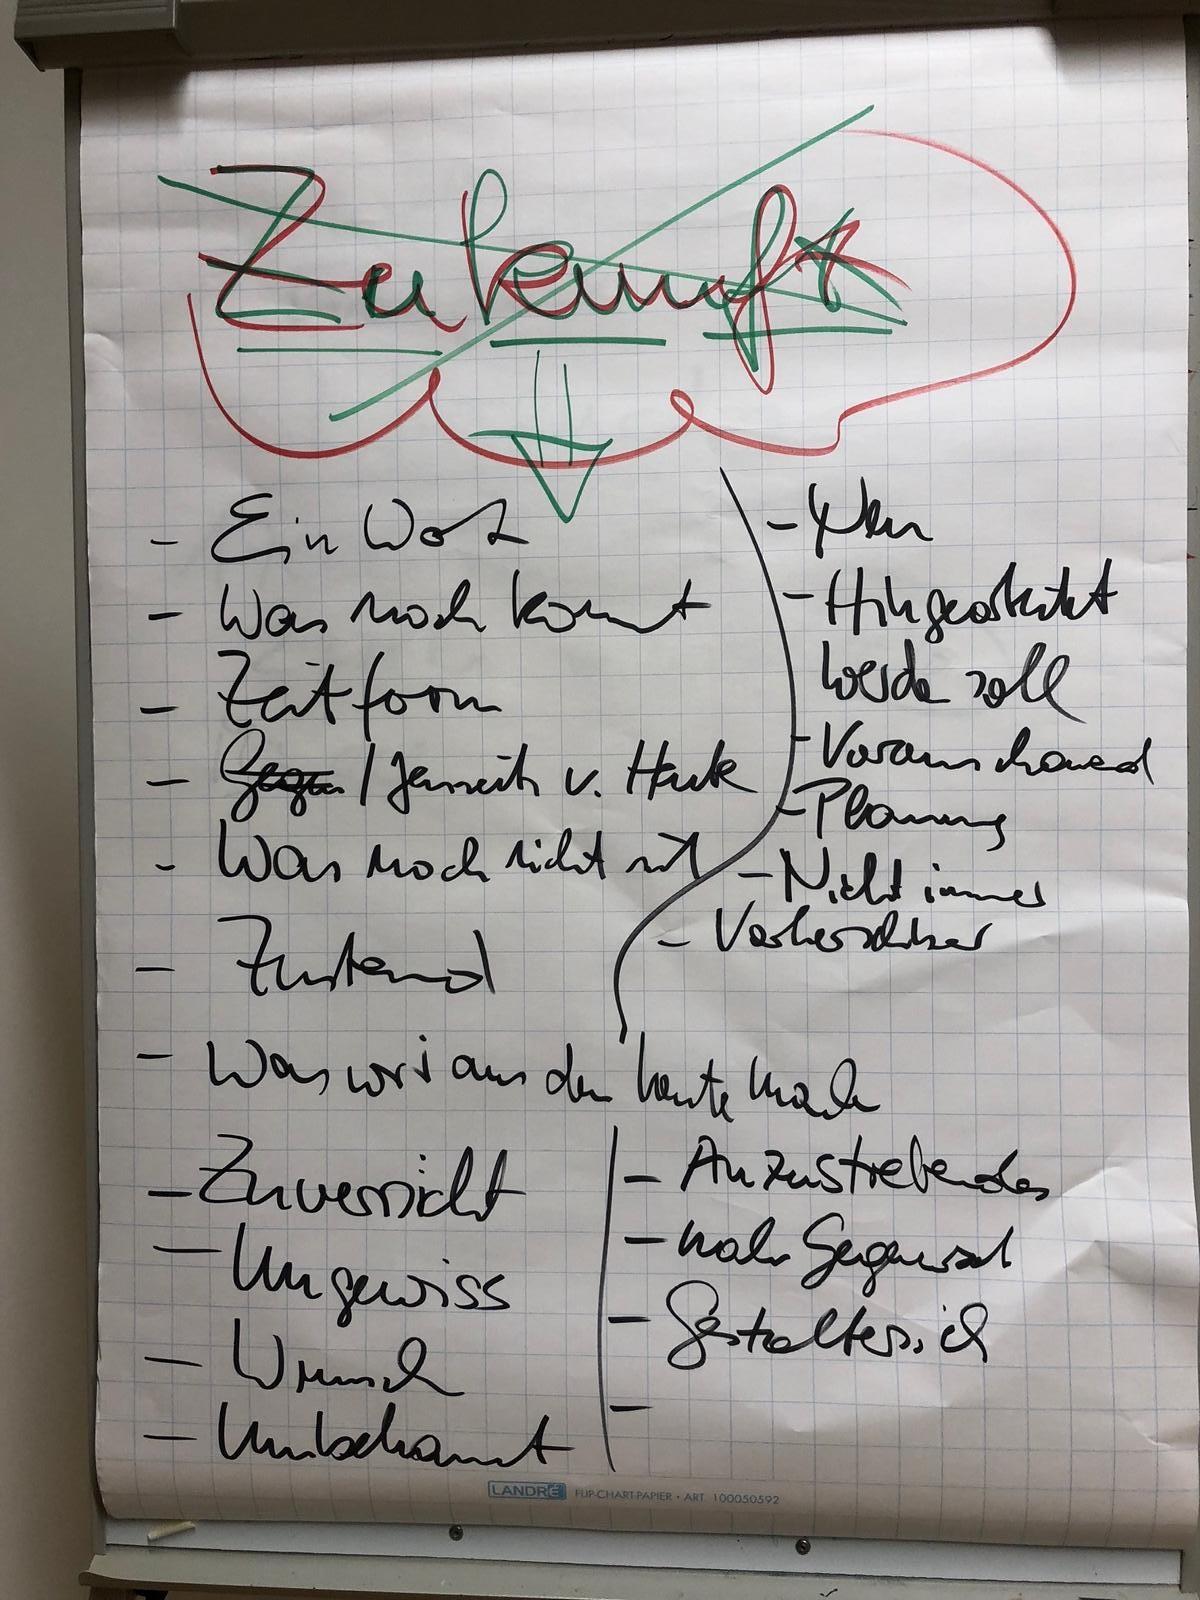 Zukunft
- Ein Wort
- Was noch kommt
- Zeitform
- / Jenseits v. Heute
- Was noch nicht ist
- Zustand
- Was wir aus dem heute mach
- Zuversicht
- Ungewiss
- Wunsch
- Unbekannt
- Hingearbeitet
werde soll
- Vorausschauend
- Planung
- Nicht immer
- Vorhersehbar
- Anzustrebendes
- nahe Gegenwart
- Gestalten sich
-
LANDRÉ FLIP-CHART-PAPIER • ART. 100050592